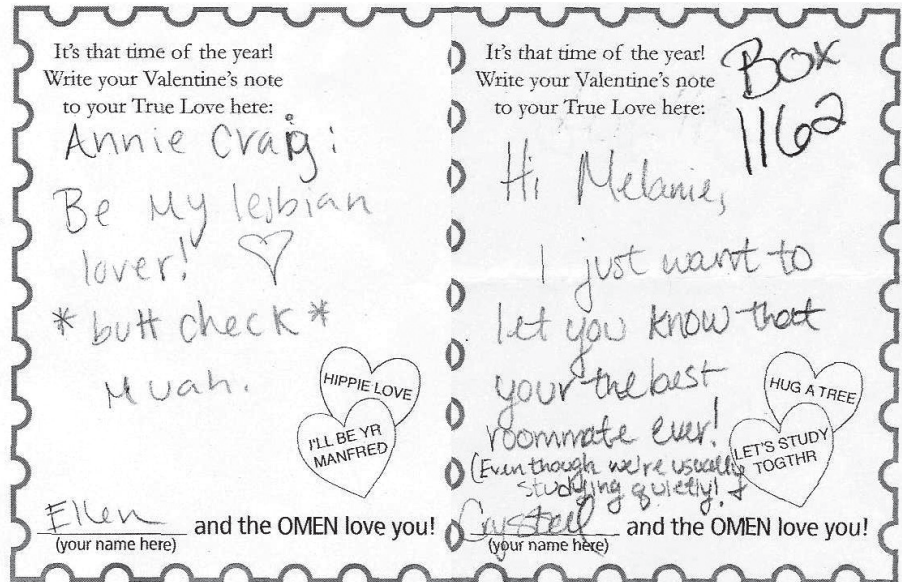 It's that time of the year!
Write your Valentine's note
to your True Love here:
Annie Craig:
Be My lesbian
lover!
*butt check*
Muah.
HIPPIE LOVE
I'LL BE YR
MANFRED
Ellen and the OMEN love you!
(your name here)
It's that time of the year!
Write your Valentine's note
to your True Love here:
BOX
1162
Hi Melanie,
I just want to
let you know that
your the best
roommate ever!
(Even though we're usually
studying quietly!)
HUG A TREE
LET'S STUDY
TOGTHR
and the OMEN love you!
(your name here)